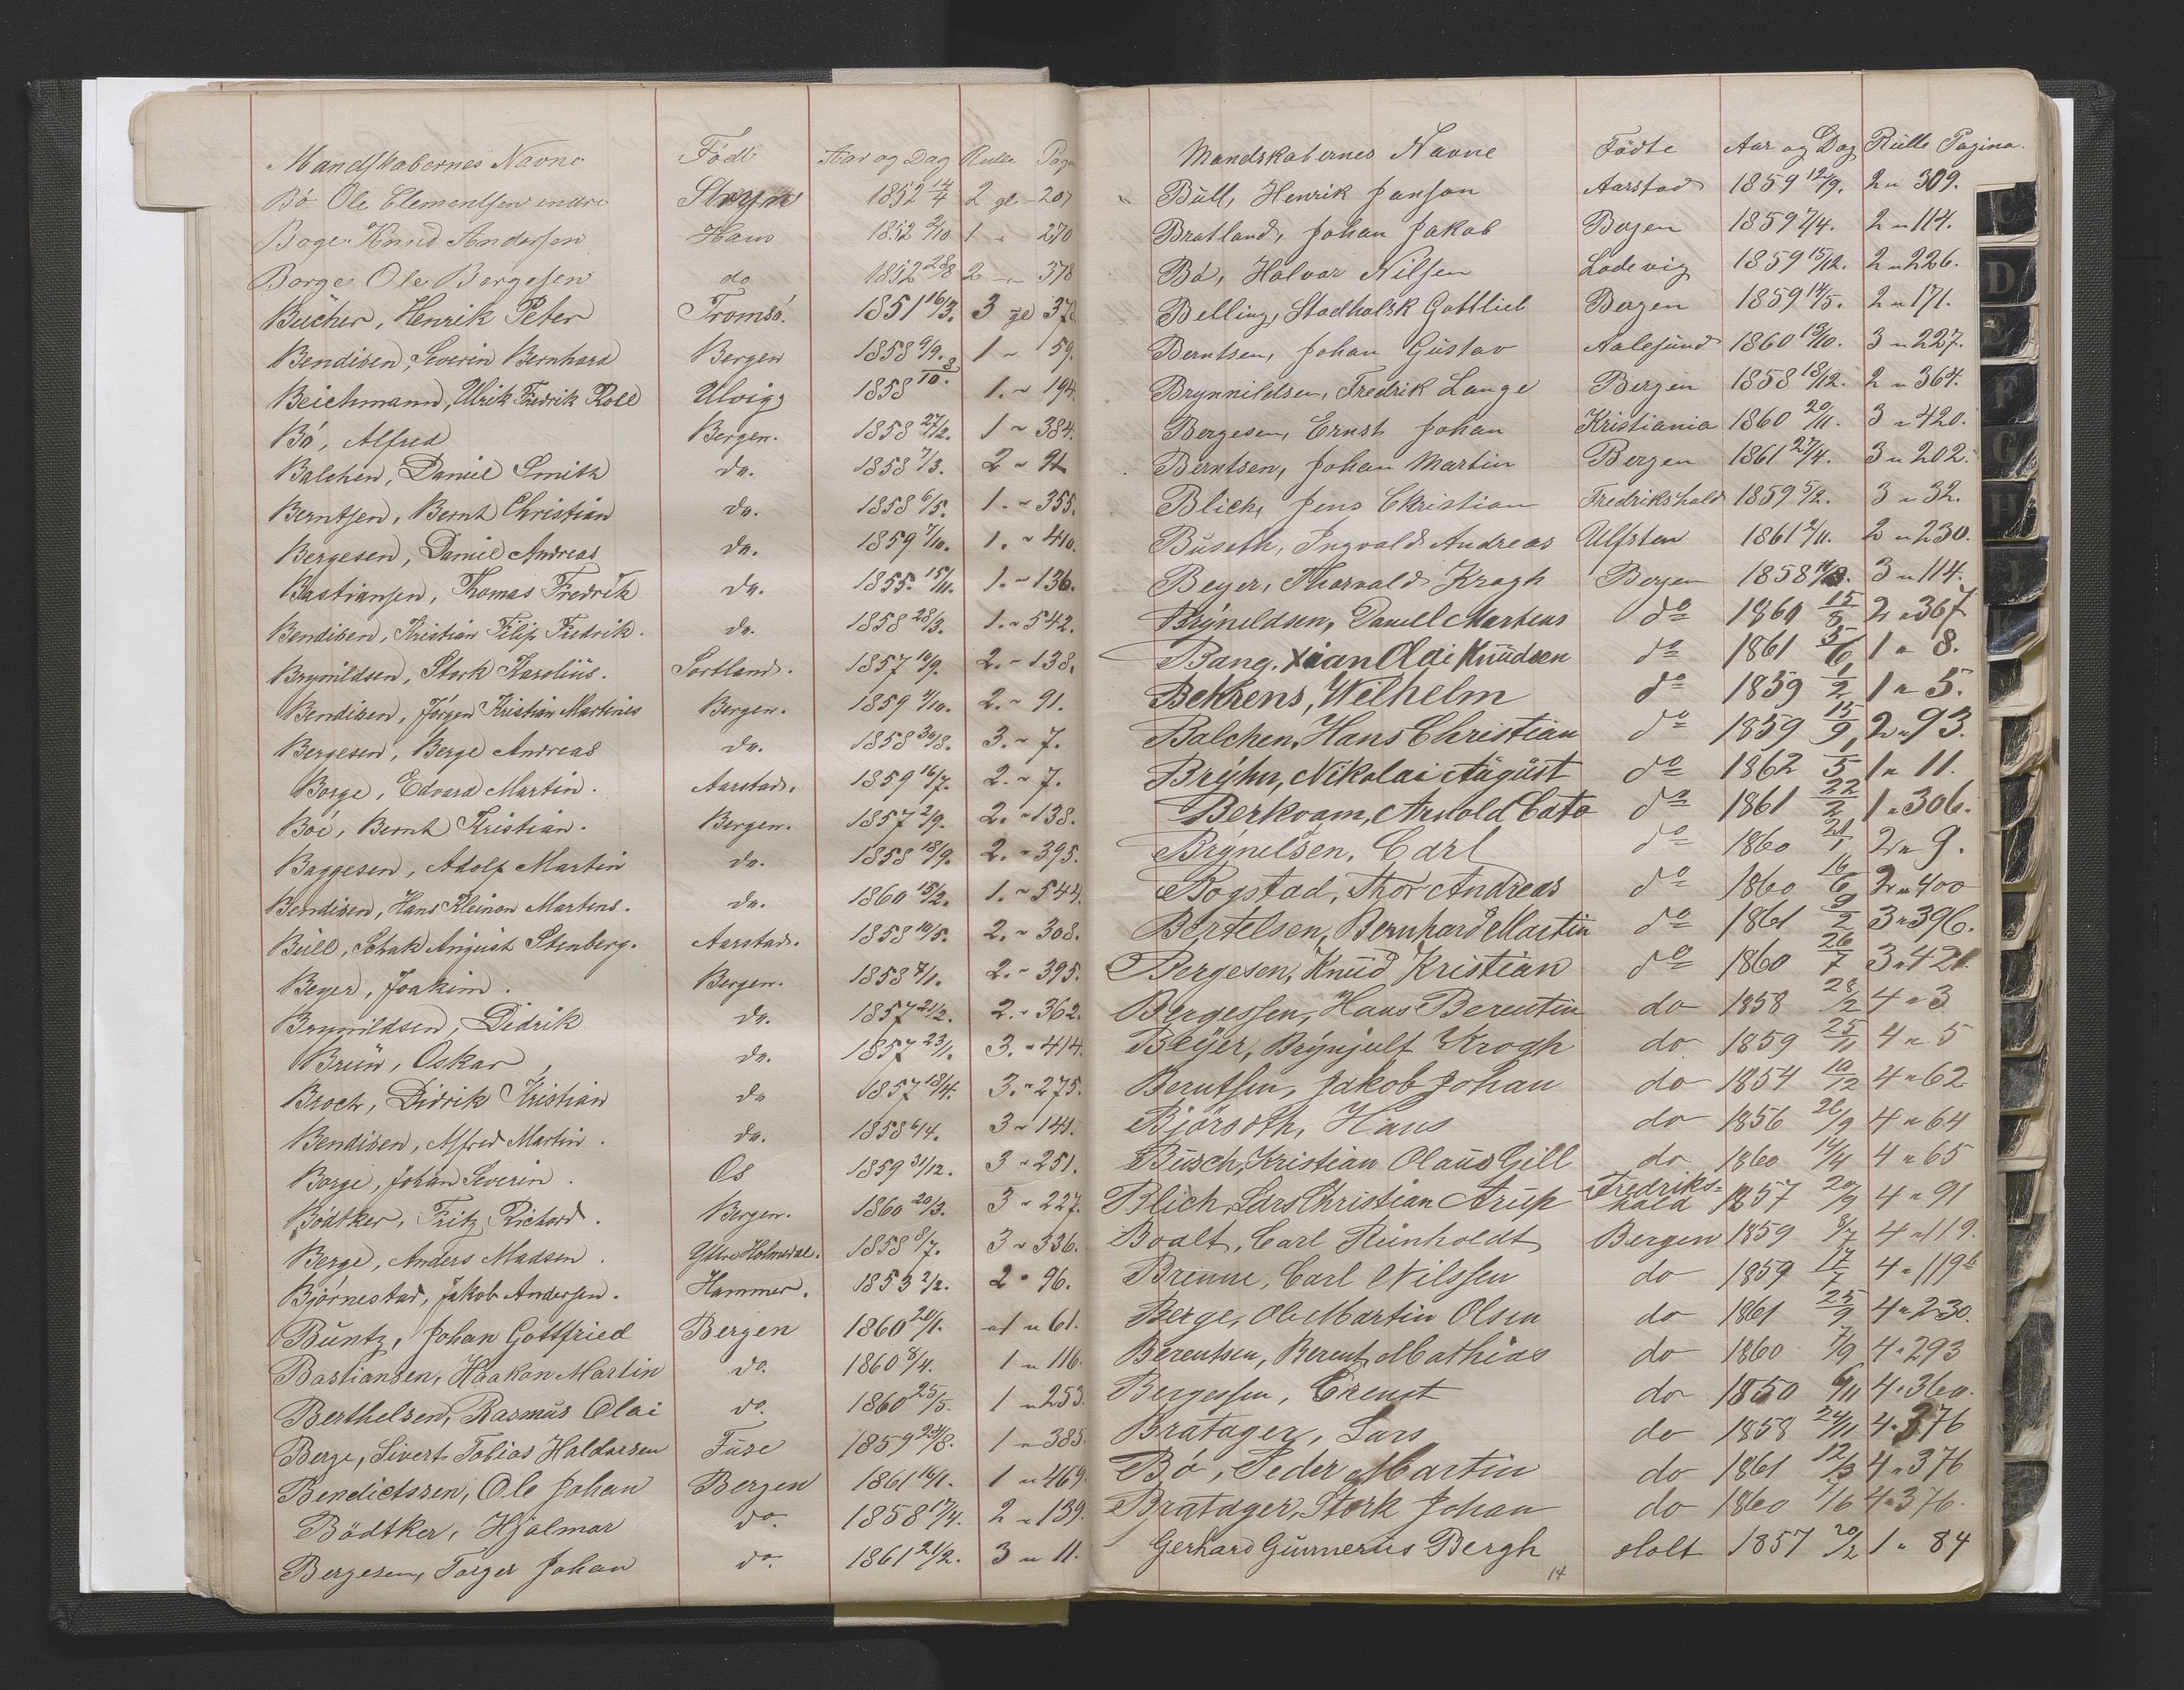 Mandskabernes Navne Födt Aar og Dag Rulle Pag
Bö Ole Clementsen Stryn 1852 14/4 2 gl - 207
Knud Andersen Haus 1852 2/10 1 " 270
Borge Ole Bergesen do 1852 28/8 2 - 378
Bücher, Henrik Peter Tromsö. 1851 16/3. 3 gl 378
Bendixen, Severin Bernhard Bergen 1858 9/9. 1 " 59.
Beichmann, Ulrik Fredrik Roll Ulvig 1858 3/10. 1. " 194.
Bö, Alfred Bergen. 1858 27/12. 1 " 384.
Balchen, Daniel Smith do. 1858 7/3. 2 " 91
Berntsen, Bernt Christian do. 1858 6/5. 1. " 355.
Bergesen, Daniel Andreas do. 1859 7/10. 1. " 410.
Bastiansen, Thomas Fredrik do. 1855. 15/11. 1. " 136.
Bendixen, Kristian Filip Fredrik. do. 1858 28/3. 1. " 542.
Brynildsen, Stork Karolius. Sortland. 1857 16/9. 2. " 138.
Bendixen, Jörgen Kristian Martines Bergen. 1859 3/10. 2. " 91.
Bergesen, Berge Andreas do. 1858 30/8. 3. " 7.
Borge, Edvard Martin. Aarstad. 1859 16/7. 2. " 7.
Böe, Bernt Kristian. Bergen. 1857 2/9. 2. " 138.
Baggesen, Adolf Martin do. 1858 18/9. 2. " 395.
Bendixen, Hans Kleinon Martens. do. 1860 15/2. 1. " 544.
Büll, Schak August Stenberg. Aarstad. 1858 10/5. 2. " 308.
Beyer, Joakim. Bergen. 1858 4/1. 2. " 395.
Brynildsen, Didrik do. 1857 21/2. 2. " 362.
Brün, Oskar do. 1857 23/1. 3. " 414.
Broch, Didrik Kristian do 1857 18/4. 3. " 275.
Bendixen, Alfred Martin. do. 1858 6/4. 3 " 141.
Borge, Johan Severin. Os 1859 31/12. 3 " 251.
Bödtker, Fritz Richard. Bergen. 1860 20/3. 3 " 227.
Berge, Anders Madsen. Yttre Holmedal. 1858 8/7. 3 " 336.
Björnestad, Jakob Andersen. Hammer. 1853 2/2. 2 " 96.
Büntz, Johan Gottfried Bergen 1860 20/1. 1 " 61.
Bastiansen, Haakon Martin do. 1860 8/4. 1 " 116.
Berthelsen, Rasmüs Olai do. 1860 25/5. 1 " 253.
Berge, Sivert Tobias Haldorsen Füse 1859 29/8. 1 " 385.
Bendictssen, Ole Johan Bergen 1861 16/1. 1 " 469.
Bödtker, Hjalmar do. 1858 17/4. 2 " 139.
Bergesen, Torger Johan do. 1861 21/2. 3 " 11.
Mandskabernes Navne Födte Aar og Dag Rülle Pagina.
Büll, Henrik Janson Aarstad 1859 12/9. 2 " 309.
Bratland, Johan Jakob Bergen 1859 7/4. 2 " 114.
Bö, Halvor Nilsen Ladevig 1859 15/12. 2 " 226.
Belling, Stadholsk Gottlieb Bergen 1859 14/5. 2 " 171.
Berntsen, Johan Güstav Aalesünd 1860 13/10. 3 " 227.
Brynnildsen, Fredrik Lange Bergen 1858 18/12. 2 " 364.
Bergesen, Ernst Johan Kristiania 1860 20/11. 3 " 420.
Berntsen, Johan Martin Bergen 1861 27/4. 3 " 202.
Blich, Jens Christian Fredrikshald 1859 5/2. 3 " 32.
Büseth, Ingvald Andreas Ulfsten 1861 2/11. 2 " 230.
Beyer, Thorvald Krogh Bergen 1858 3 " 114.
Brÿneldsen, Daniell Martens do 1860 15/8 2 " 367
Bang, Xian Olai Knüdsen do 1861 5/6 1 " 8.
Behrens, Wilhelm do 1859 1/2 1 " 5.
Balchen, Hans Christian do 1859 15/9 2 " 93.
Brÿhn, Nikolai Aügüst do 1862 1/5 1 " 11.
Berkvam, Arnold Cato do 1861 22/2 1 " 306.
Brÿnelsen, Carl do 1860 21/1 2 " 9.
Bogstad, Thor Andreas do 1860 16/6 2 " 400
Bertelsen, Bernhard Martin do 1861 9/2 3 " 396.
Bergesen, Knüd Kristian do 1860 26/7 3 " 421.
Bergessen, Hans Berentin do 1858 28/2 4 " 3
Beÿer, Brÿnjulf Krogh do 1859 25/11 4 " 5
Berntsen, Jakob Johan do 1854 10/12 4 " 62
Björsvth, Hans do 1856 26/9 4 " 64
Büsch, Kristian Olaüs Gill do 1860 14/4 4 " 65
Blich, Lars Christian Arup Fredriks=hald 1857 20/9 4 " 91
Boalt, Carl Reinholdt Bergen 1859 8/7 4 " 119.
Brenne, Carl Nilssen do 1859 17/7 4 " 119 b
Berge, Ole Martin Olsen do 1861 25/9 4 " 230.
Berentsen, Berent Mathias do 1860 7/9 4 " 293
Bergessen, Ernst do 1850 6/11 4 " 360.
Bratager, Lars do 1858 24/11 4 " 376
Bö, Peder Martin do 1861 12/3 4 " 376
Bratager, Stork Johan do 1860 7/6 4 " 376.
Gerhard Günnerus Bergh Holt 1857 20/2 1 " 84
14
C
D
E
F
G
H
J
K